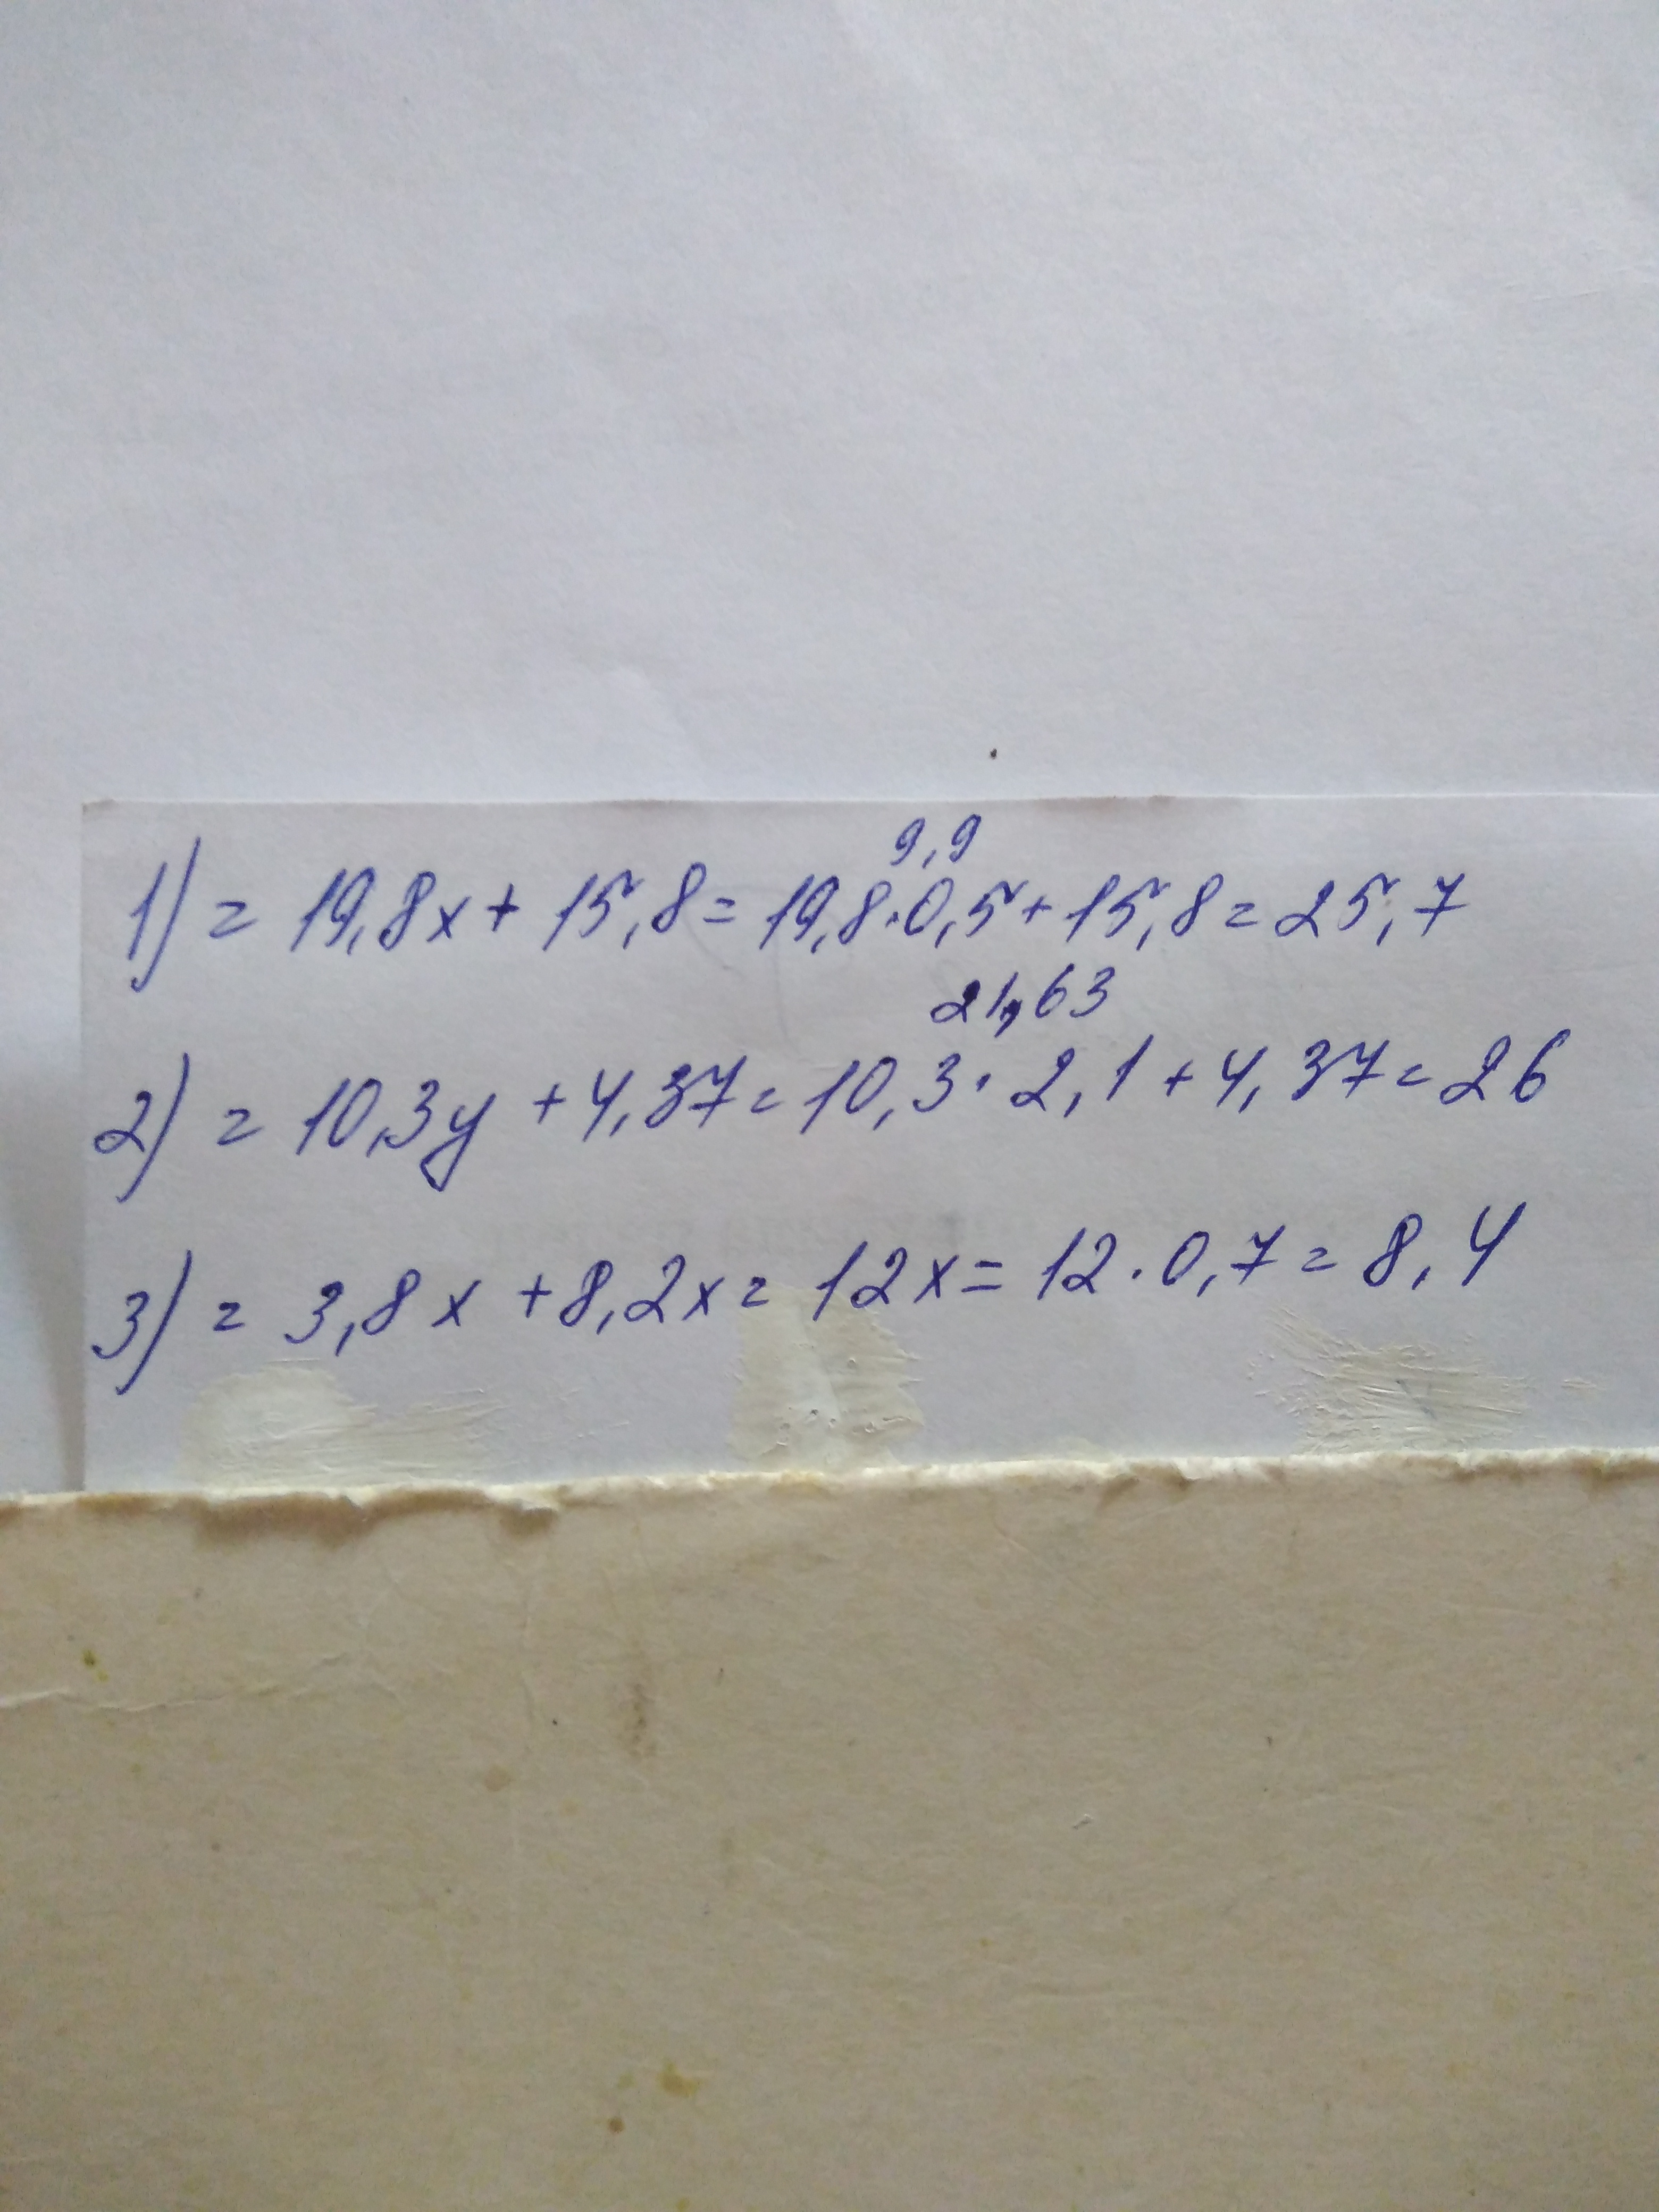 9,9
1) = 19,8x + 15,8 = 19,8·0,5 + 15,8 = 25,7
21,63
2) = 10,3y + 4,37 = 10,3·2,1 + 4,37 = 26
3) = 3,8x + 8,2x = 12x = 12·0,7 = 8,4